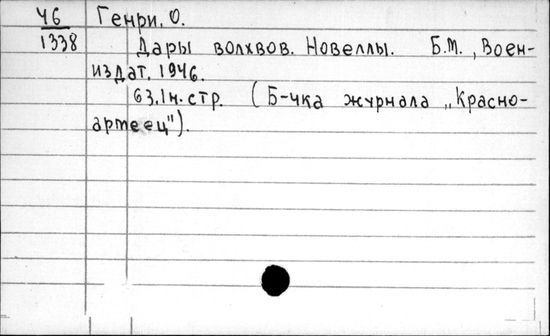 Ч6 Генри, О.
1338 Дары волхвов. Новеллы. Б.М., Воен-
издат, 1946.
63,1н.стр. (Б-чка журнала „Красно-
артеец").